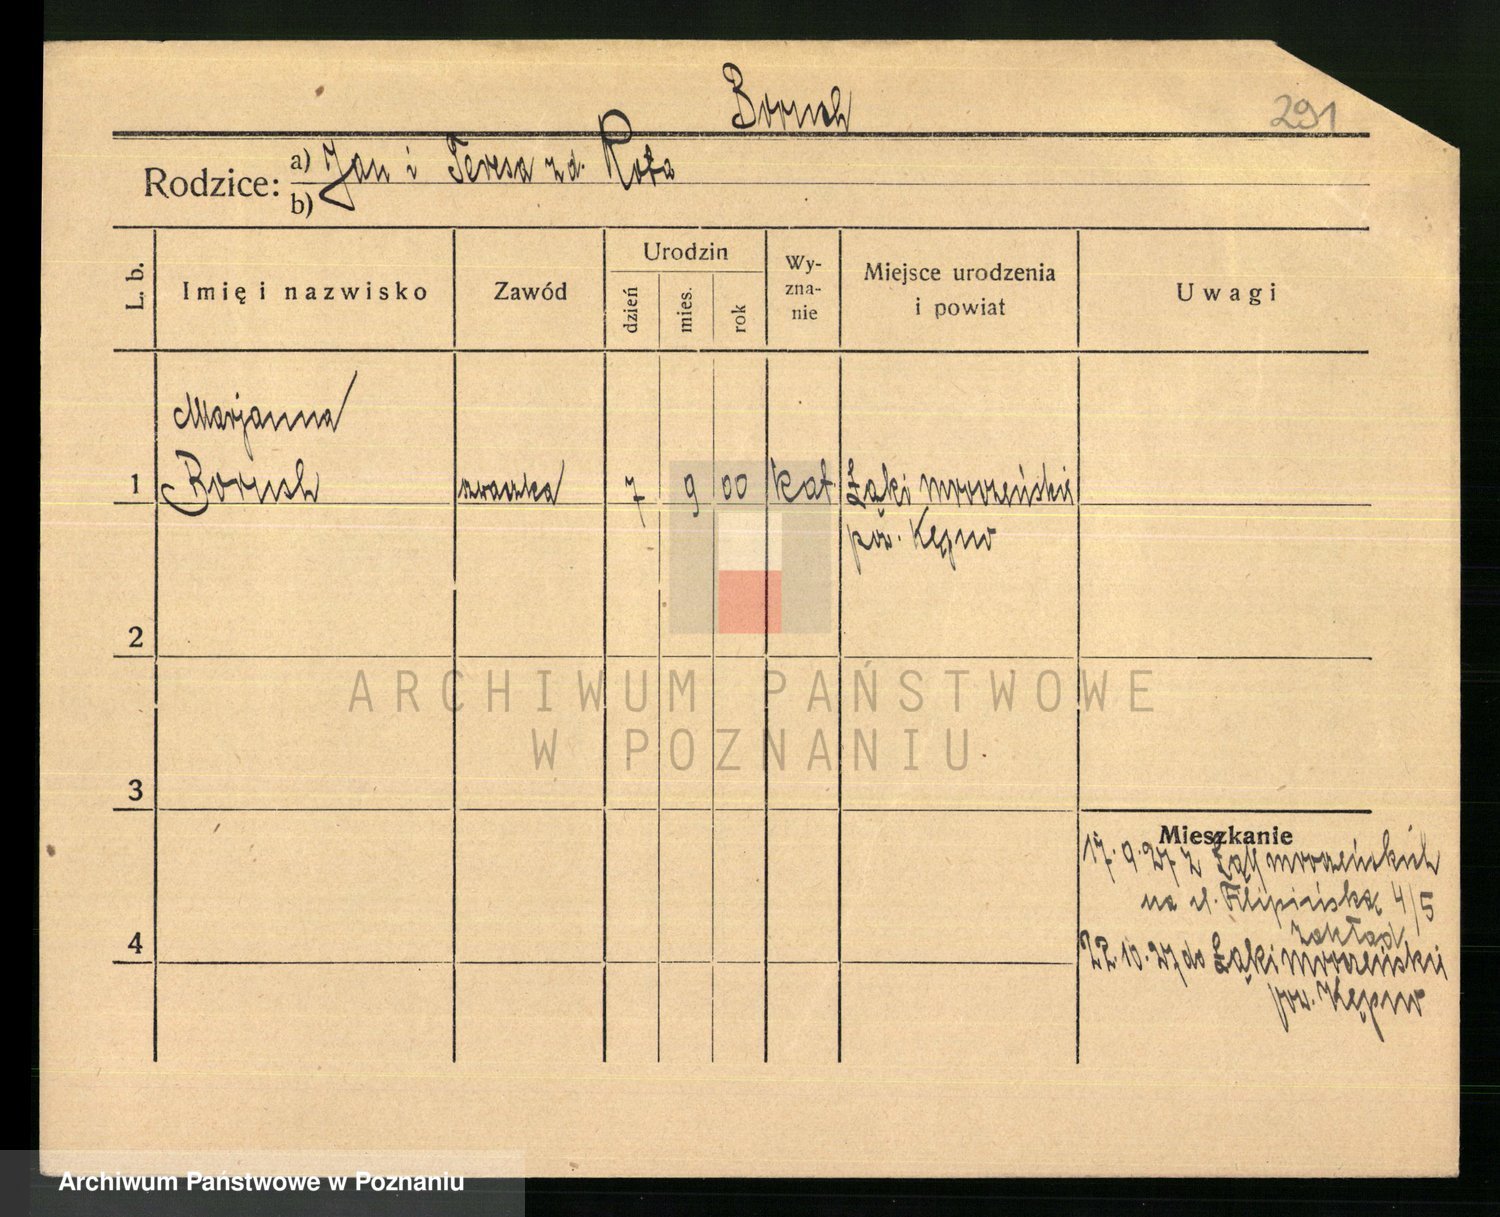 Boruch
291
Rodzice: a) Jan i Teresa zd. Kota
b)
L. b.
Imię i nazwisko
Zawód
Urodzin
dzień
mies.
rok
Wy-
zna-
nie
Miejsce urodzenia
i powiat
Uwagi
Marjanna
1 Boruch 7 9 00 kat Łąki mroczeńskie
pow. Kępno
2
ARCHIWUM PAŃSTWOWE
W POZNANIU
3
Mieszkanie
17.9.27 z Łąk mroczeńskich
na ul. Filipińska 4/5
zakład
4
22.10.27 do Łąki mroczeńskie
pow. Kępno
Archiwum Państwowe w Poznaniu